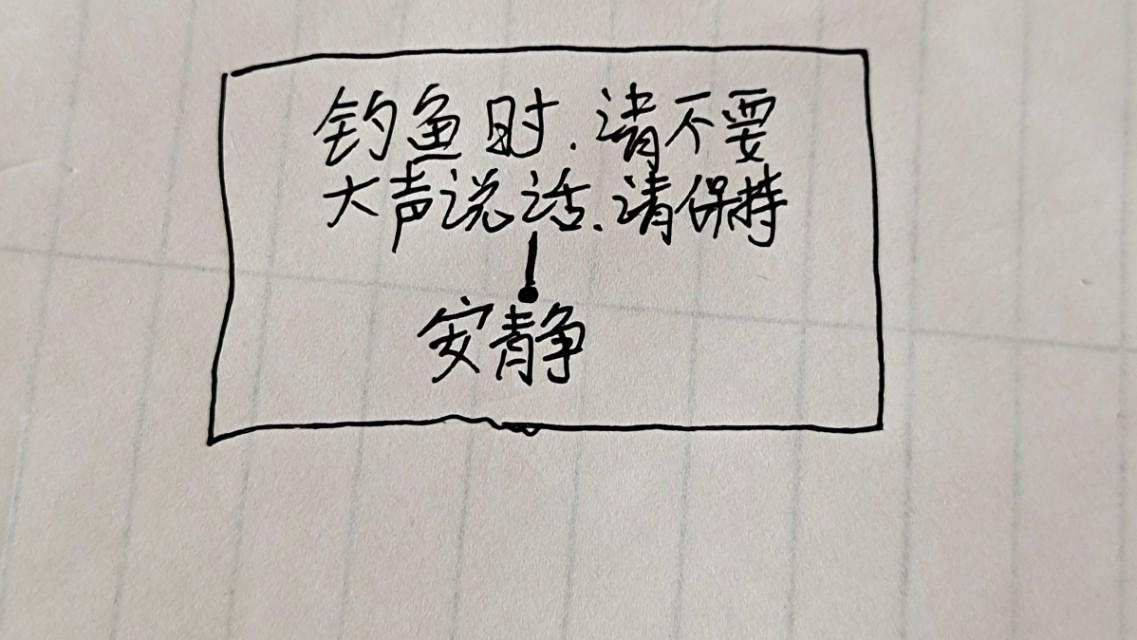 钓鱼时.请不要
大声说话.请保持
安静